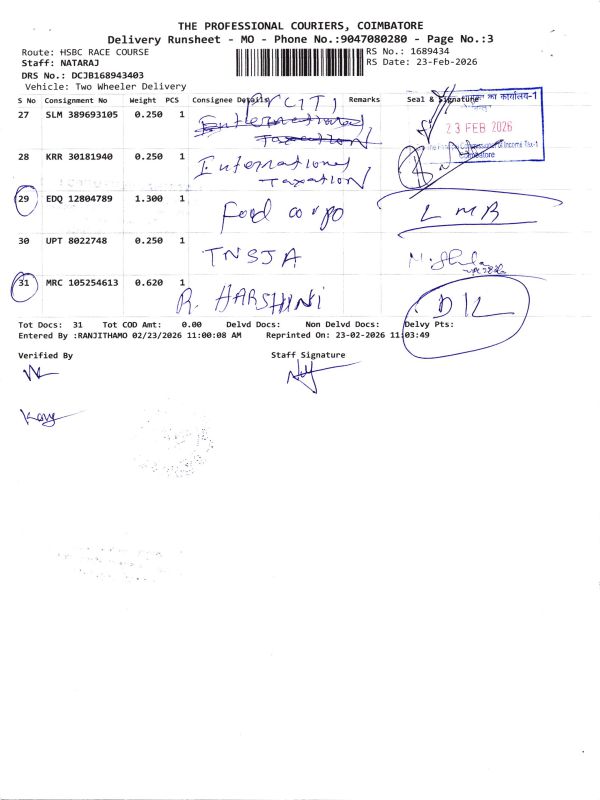 THE PROFESSIONAL COURIERS, COIMBATORE
Delivery Runsheet - MO - Phone No.:9047080280 - Page No.:3
Route: HSBC RACE COURSE
RS No.: 1689434
Staff: NATARAJ
RS Date: 23-Feb-2026
DRS No.: DCJB168943403
Vehicle: Two Wheeler Delivery
S No Consignment No Weight PCS Consignee Details Remarks Seal & Signature
27 SLM 389693105 0.250 1 Pr CIT 1
International
Taxation
का कार्यालय-1
23 FEB 2026
Income Tax-1
Coimbatore
28 KRR 30181940 0.250 1 International
Taxation
29 EDQ 12804789 1.300 1 Food corpo LMB
30 UPT 8022748 0.250 1 TNSJA
31 MRC 105254613 0.620 1 R. HARSHINI DIL
Tot Docs: 31 Tot COD Amt: 0.00 Delvd Docs: Non Delvd Docs: Delvy Pts:
Entered By :RANJITHAMO 02/23/2026 11:00:08 AM Reprinted On: 23-02-2026 11:03:49
Verified By Staff Signature